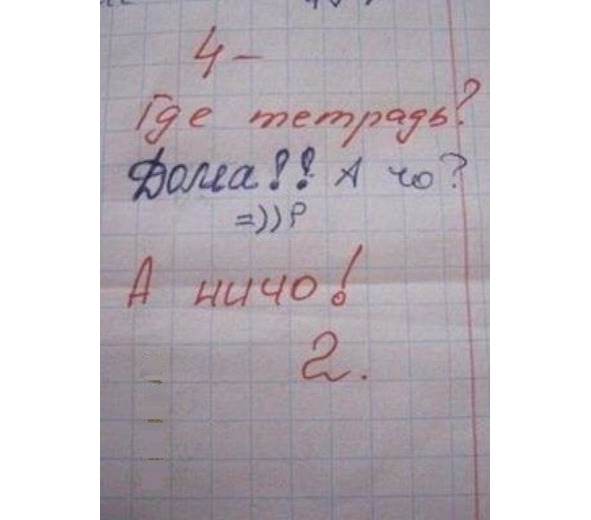 4-
Где тетрадь?
Дома!! А чо?
=))Р
А ничо!
2.